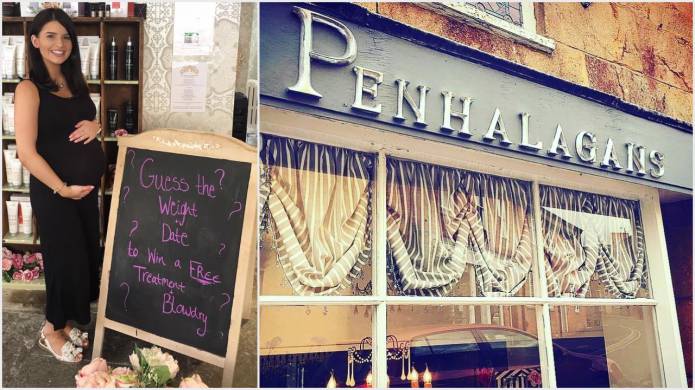 Guess the
Weight
Date
to Win a FREE
Treatment
Blowdry
PENHALAGANS